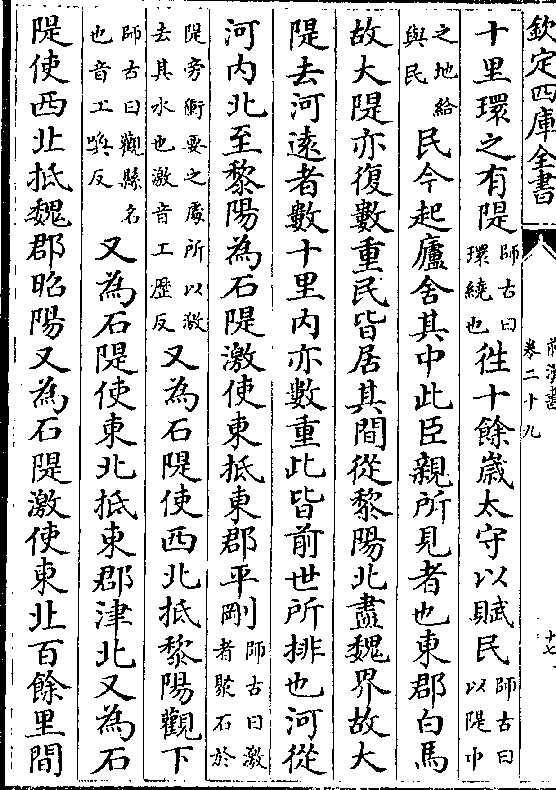 欽定四庫全書
前漢書
卷二十九
十七
十里環之有隄師古曰環繞也往十餘歲太守以賦民師古曰以隄中
之地給與民民今起廬舍其中此臣親所見者也東郡白馬
故大隄亦復數重民皆居其間從黎陽北盡魏界故大
隄去河遠者數十里内亦數重此皆前世所排也河從
河内北至黎陽為石隄激使東抵東郡平剛師古曰激者聚石於
隄旁衝要之處所以激去其水也激音工歷反又為石隄使西北抵黎陽觀下
師古曰觀縣名也音工喚反又為石隄使東北抵東郡津北又為石
隄使西北抵魏郡昭陽又為石隄激使東北百餘里間